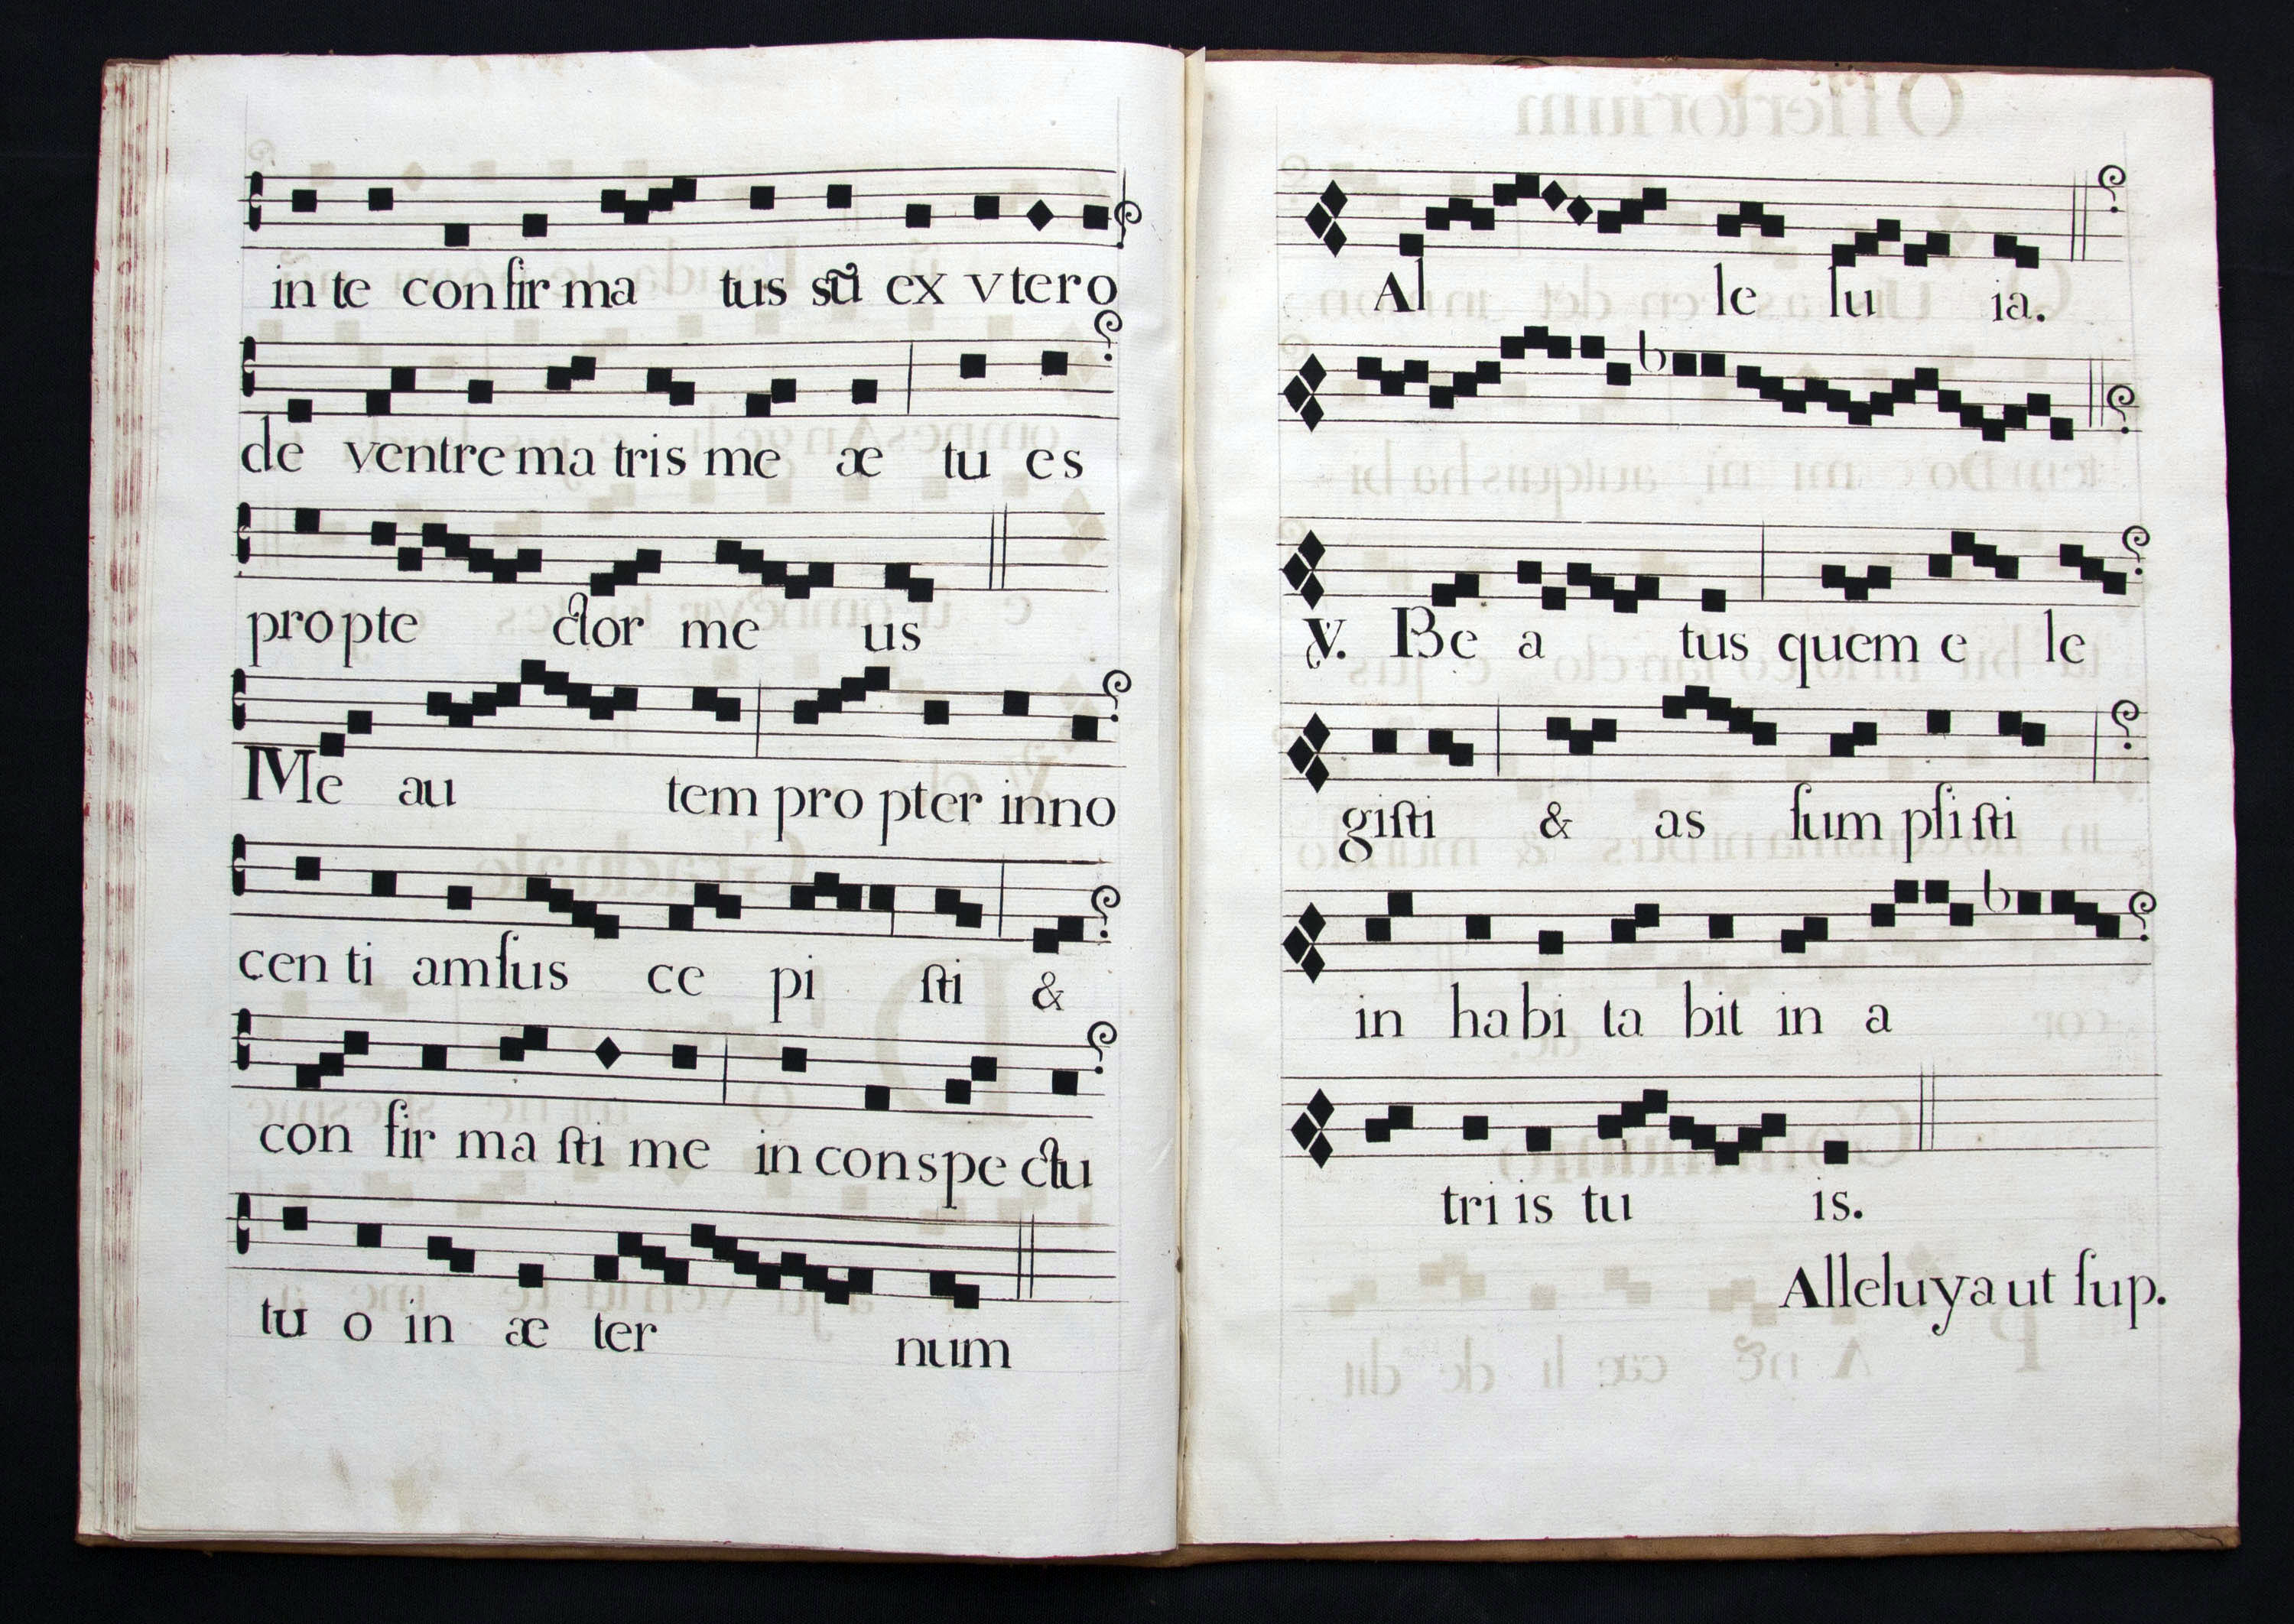 in te con fir ma tus sũ ex vtero
de ventre ma tris me æ tu es
pro pte ctor me us
Me au tem pro pter inno
cen ti am ſus ce pi ſti &
con fir ma ſti me in conspe ctu
tu o in æ ter num
Al le lu ia.
℣. Be a tus quem e le
giſti & as ſum pſi ſti
in ha bi ta bit in a
tri is tu is.
Alleluya ut ſup.